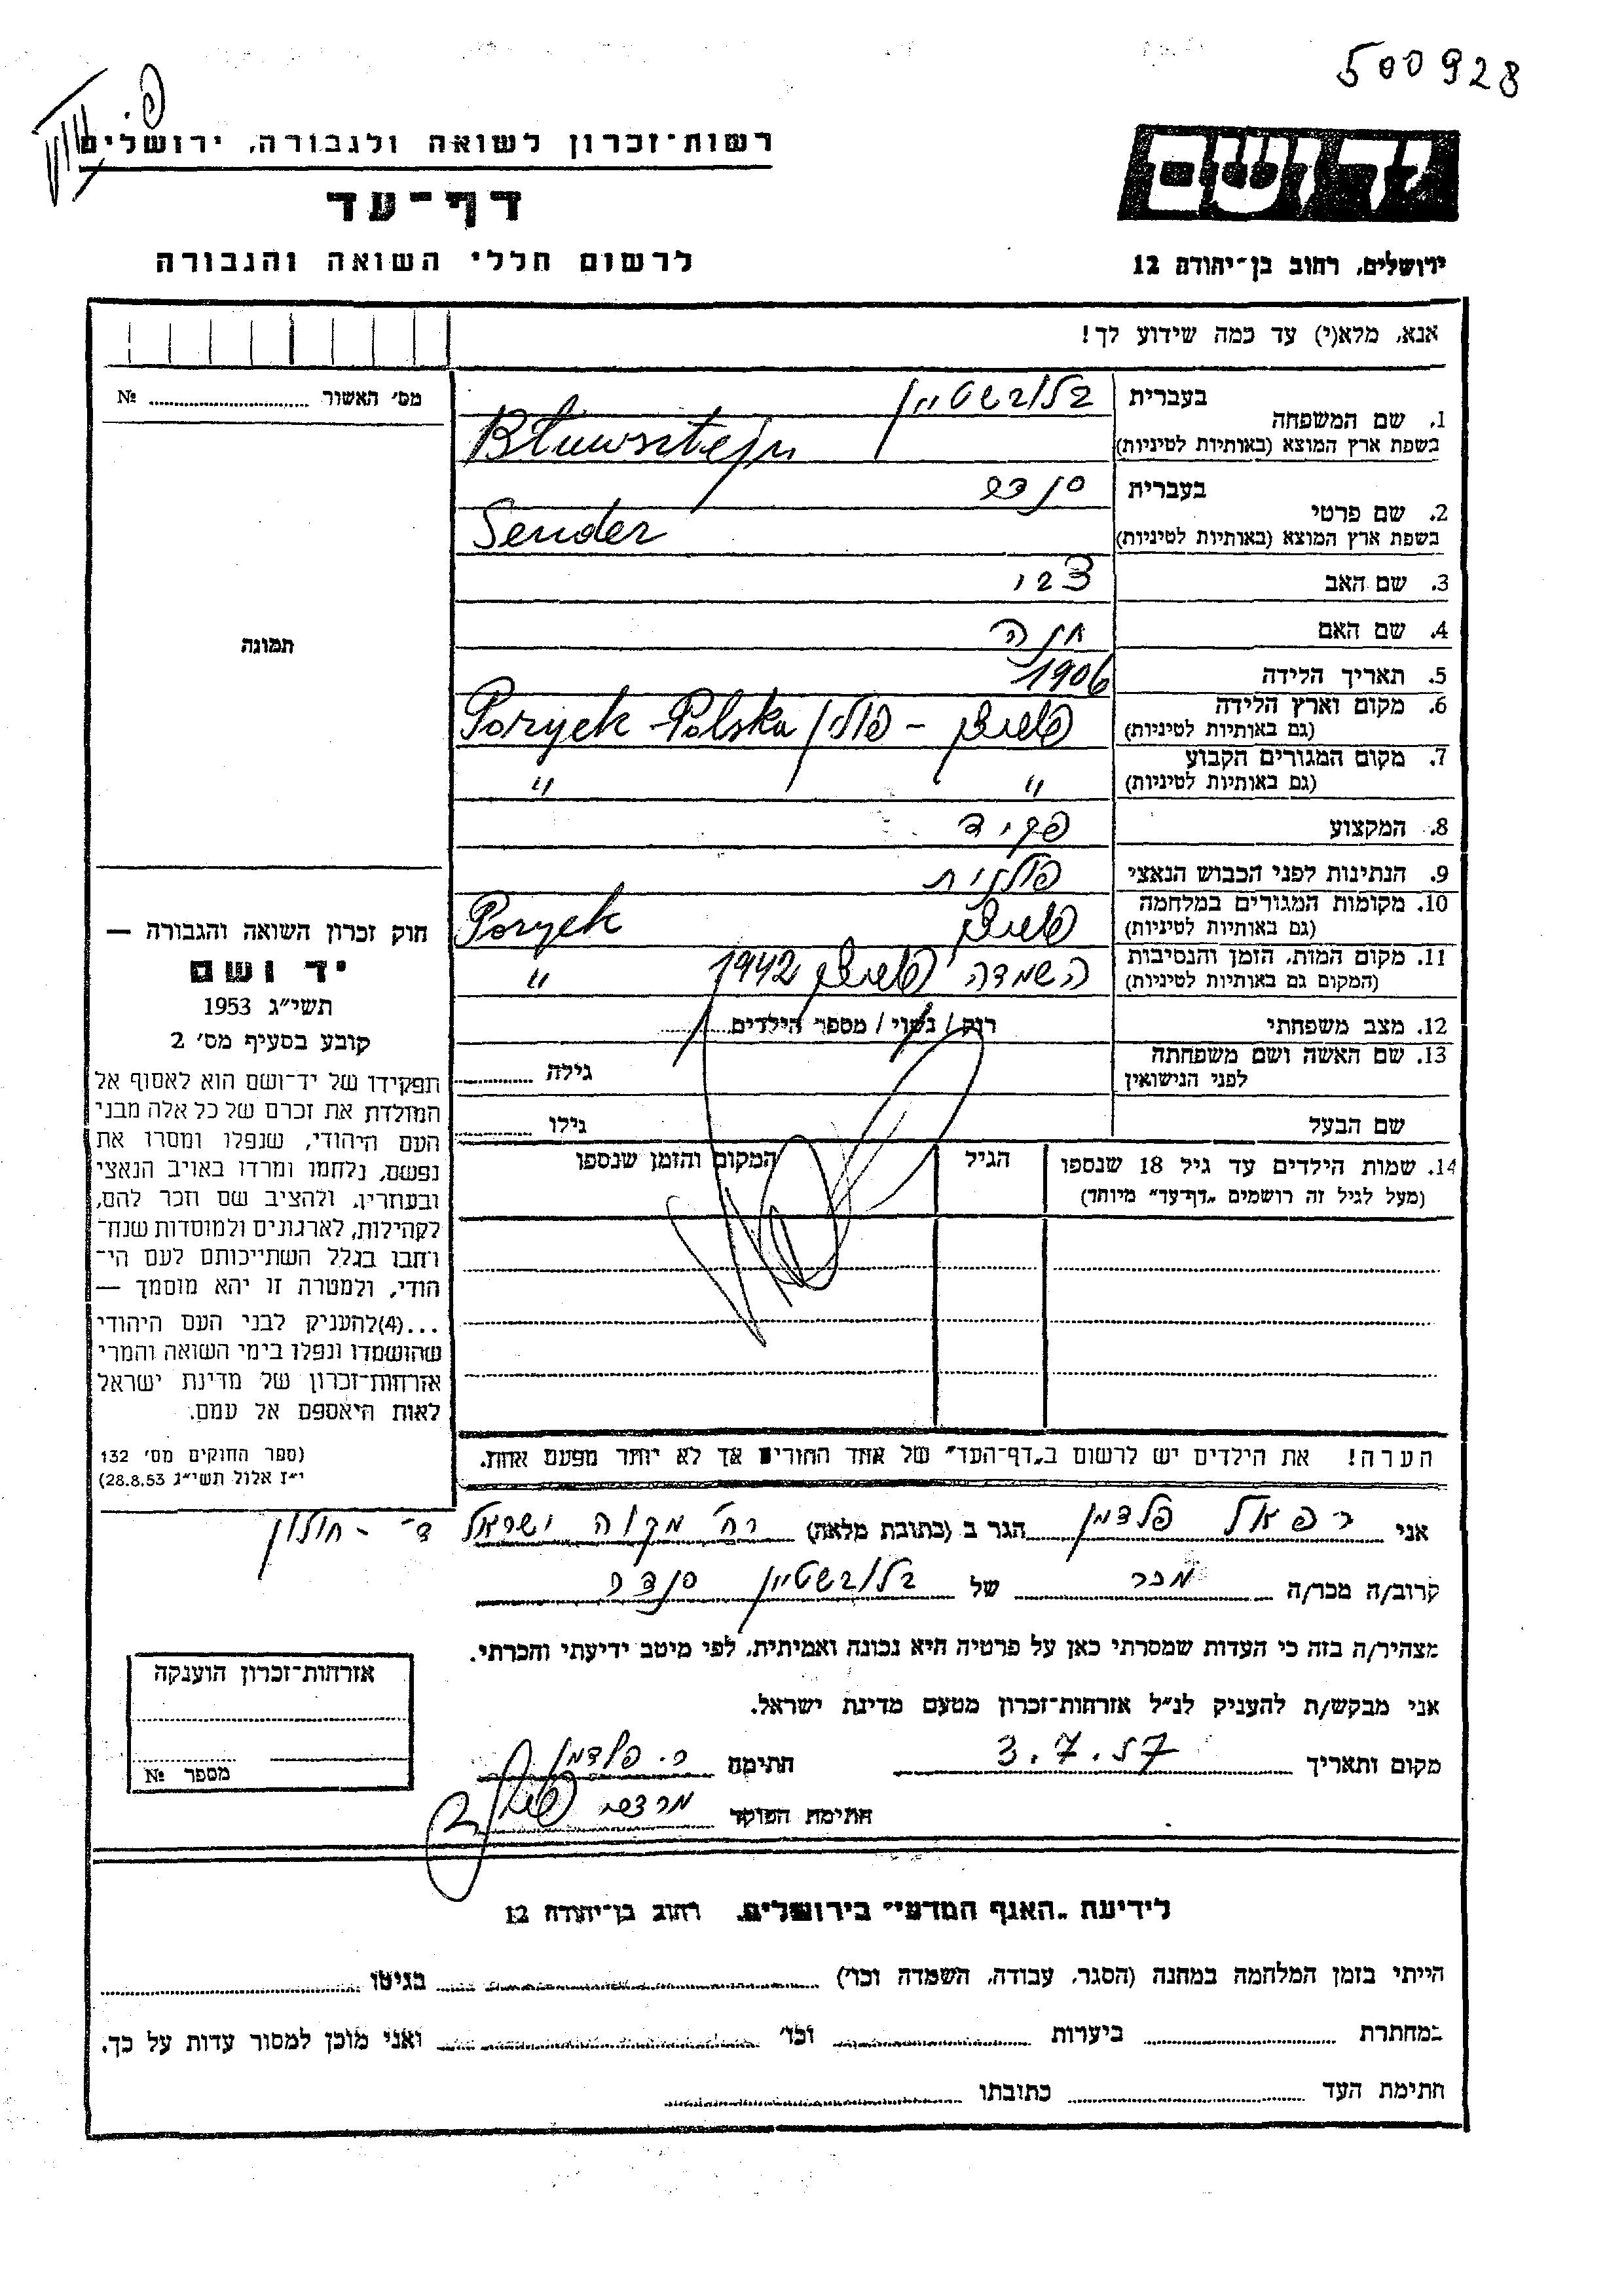 500928
רשות־זכרון לשואה ולגבורה, ירושלים
דף־עד
לרשום חללי השואה והגבורה
יד ושם
ירושלים, רחוב בן־יהודה 12
אנא, מלא(י) עד כמה שידוע לך!
מס׳ האשור № 
תמונה
1. שם המשפחה
בעברית בלובשטיין
בשפת ארץ המוצא (באותיות לטיניות) Bluwsztejn
2. שם פרטי
בעברית סנדר
בשפת ארץ המוצא (באותיות לטיניות) Sender
3. שם האב צבי
4. שם האם חנה
5. תאריך הלידה 1906
6. מקום וארץ הלידה
(גם באותיות לטיניות) פוריצק - פולין Poryck Polska
7. מקום המגורים הקבוע
(גם באותיות לטיניות) " "
8. המקצוע פקיד
9. הנתינות לפני הכבוש הנאצי פולנית
10. מקומות המגורים במלחמה
(גם באותיות לטיניות) פוריצק Poryck
11. מקום המות, הזמן והנסיבות
(המקום גם באותיות לטיניות) השמדה פוריצק 1942 "
12. מצב משפחתי רווק / נשוי / מספר הילדים
13. שם האשה ושם משפחתה
לפני הנישואין גילה
שם הבעל גילו
14. שמות הילדים עד גיל 18 שנספו הגיל המקום והזמן שנספו
(מעל לגיל זה רושמים „דף־עד” מיוחד)
חוק זכרון השואה והגבורה —
יד ושם
תשי״ג 1953
קובע בסעיף מס׳ 2
תפקידו של יד־ושם הוא לאסוף אל
המולדת את זכרם של כל אלה מבני
העם היהודי, שנפלו ומסרו את
נפשם, נלחמו ומרדו באויב הנאצי
ובעוזריו, ולהציב שם וזכר להם,
לקהילות, לארגונים ולמוסדות שנח־
רבו בגלל השתייכותם לעם הי־
הודי, ולמטרה זו יהא מוסמך —
...(4) להעניק לבני העם היהודי
שהושמדו ונפלו בימי השואה והמרי
אזרחות־זכרון של מדינת ישראל
לאות היאספם אל עמם.
(ספר החוקים מס׳ 132
י״ז אלול תשי״ג 28.8.53)
הערה! את הילדים יש לרשום ב„דף־העד” של אחד ההורים אך לא יותר מפעם אחת.
אני רפאל פלדמן הגר ב (כתובת מלאה) רח׳ מקוה ישראל ד׳ - חולון
קרוב/ה מכר/ה מכר של בלובשטיין סנדר
מצהיר/ה בזה כי העדות שמסרתי כאן על פרטיה היא נכונה ואמיתית, לפי מיטב ידיעתי והכרתי.
אני מבקש/ת להעניק לנ״ל אזרחות־זכרון מטעם מדינת ישראל.
מקום ותאריך 3.7.57 חתימה ר. פלדמן
חתימת הפוקד
אזרחות־זכרון הוענקה
מספר №
לידיעת „האגף המדעי” בירושלים, רחוב בן־יהודה 12
הייתי בזמן המלחמה במחנה (הסגר, עבודה, השמדה וכו׳) בגיטו
במחתרת ביערות וכו׳ ואני מוכן למסור עדות על כך.
חתימת העד כתובתו